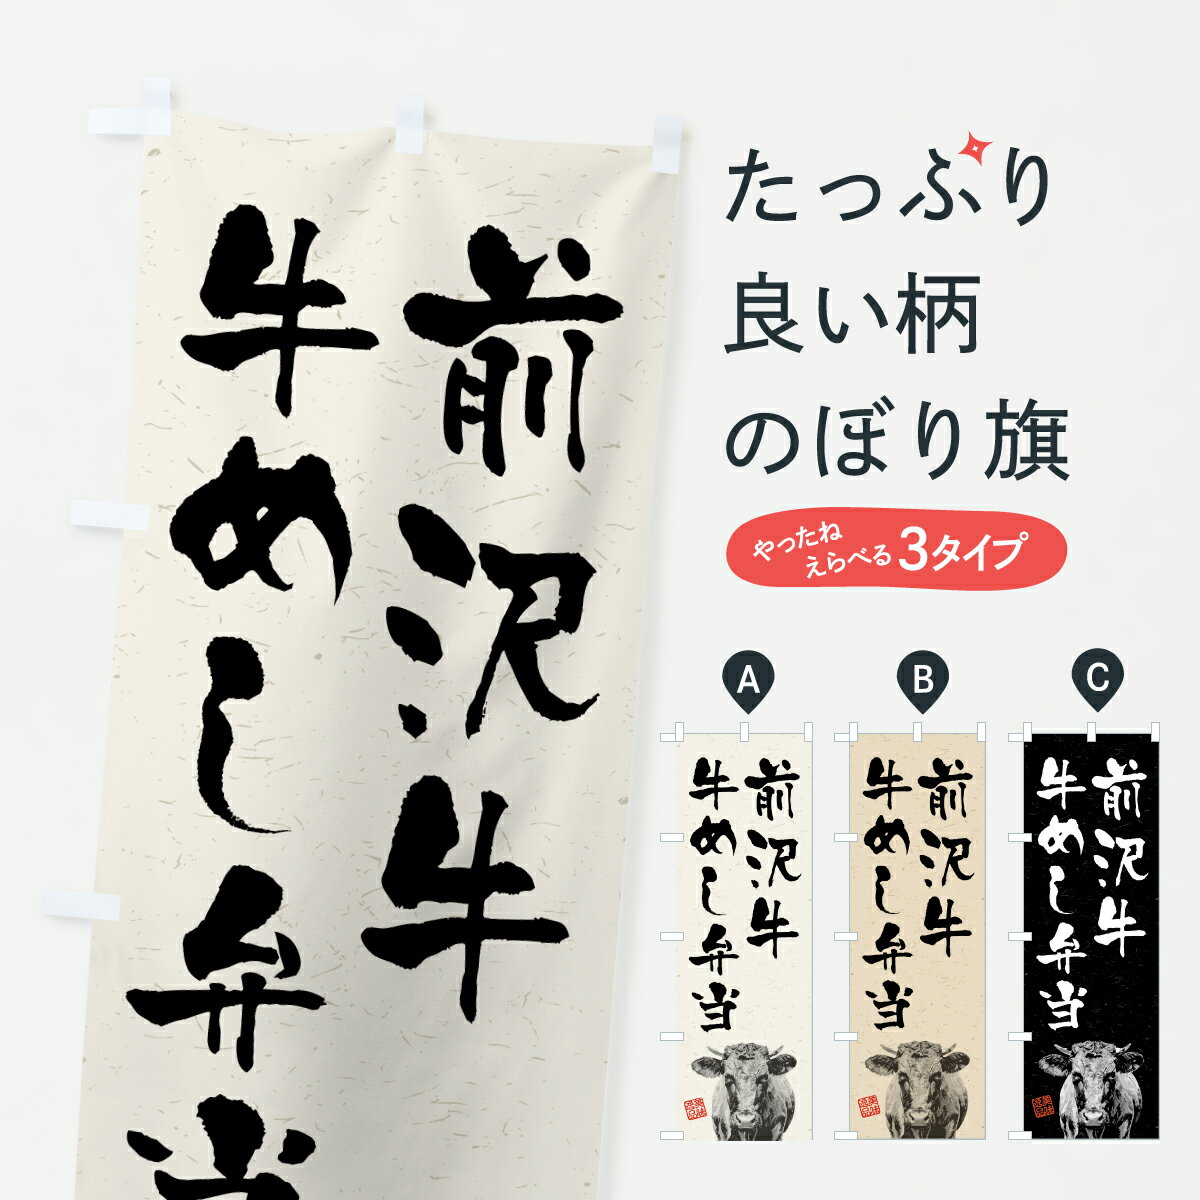 前沢牛
牛めし弁当
たっぷり
良い柄
のぼり旗
やったね
えらべる
3タイプ
A
B
C
前沢牛
牛めし弁当
前沢牛
牛めし弁当
前沢牛
牛めし弁当